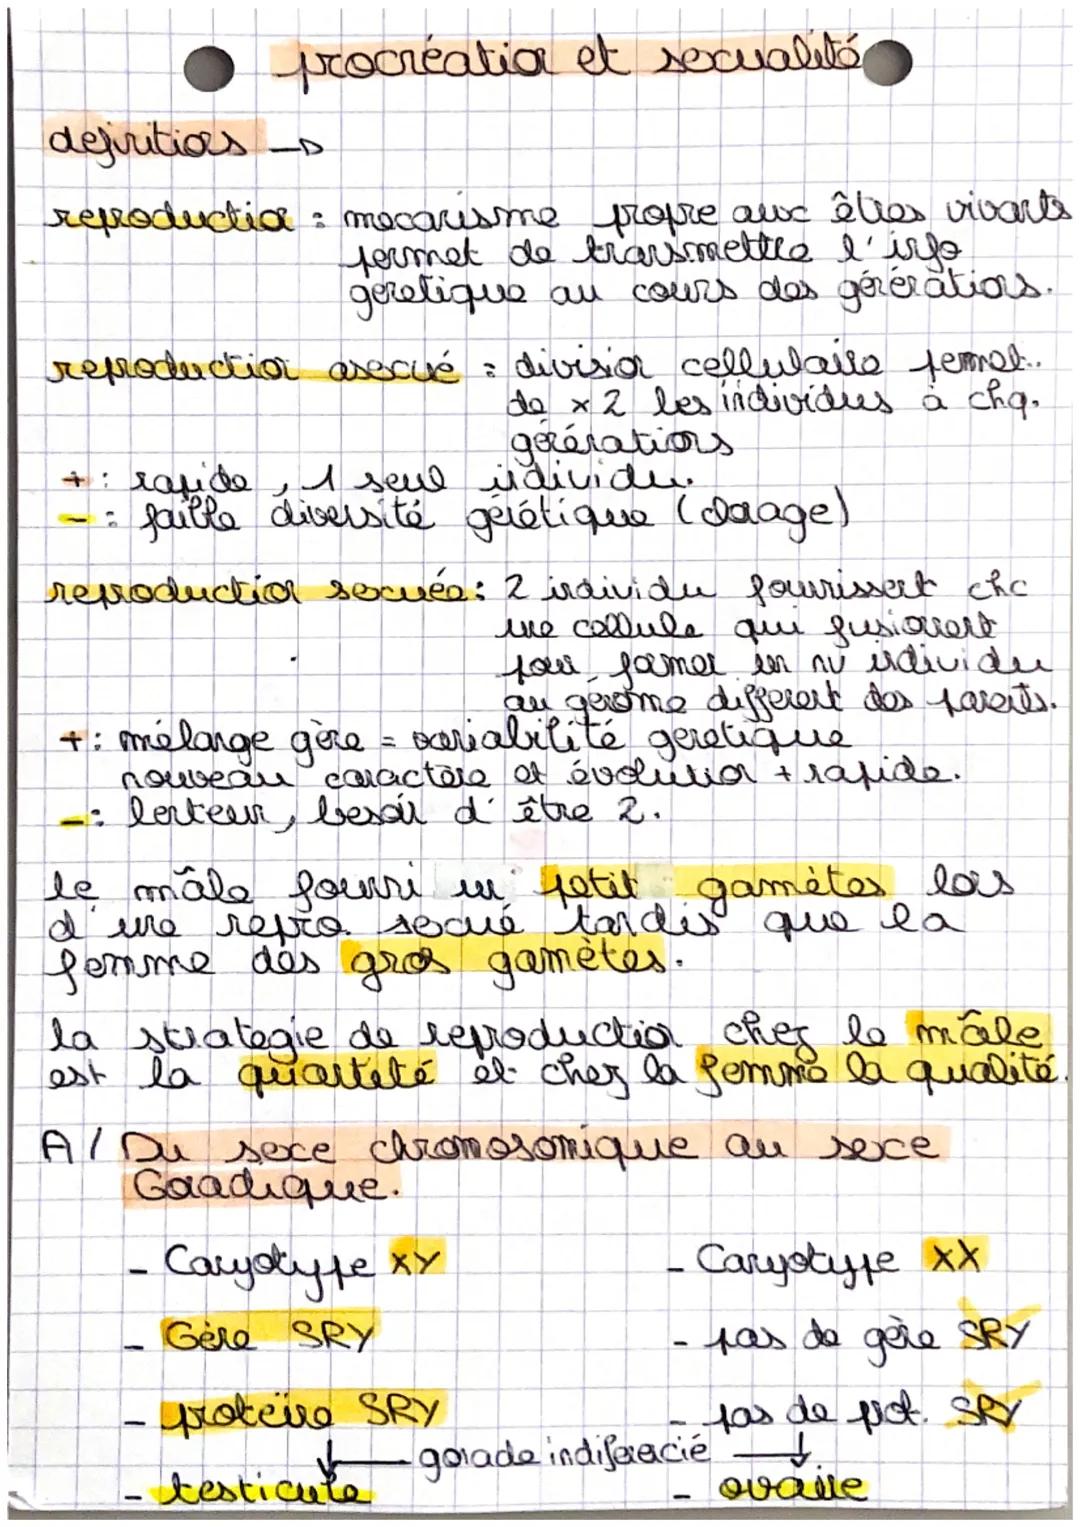 procréation et sexualité
definitions →
reproduction : mecanisme propre aux êtres vivants
permet de transmettre l'info
genetique au cours des générations.
reproduction asexué : division cellulaire permet..
de x2 les individus à chq.
générations
+ : rapide, 1 seul individu.
- : faible diversité génétique (clonage)
reproduction sexuée : 2 individu fournissent chc
une cellule qui fusionnent
pour former un nv individu
au génome different des parents.
+ : mélange gène = variabilité genetique
nouveau caractère et évolution + rapide.
- : lenteur, besoin d'être 2.
le mâle fourni un petit gamètes lors
d'une repro. sexué tandis que la
femme des gros gamètes.
la strategie de reproduction chez le mâle
est la quantité et chez la femme la qualité.
A/ Du sexe chromosomique au sexe
Gonadique.
- Caryotype XY - Caryotype XX
- Gène SRY - pas de gène SRY
- protéine SRY - pas de prot. SRY
gonade indiferencié
- testicule - ovaire